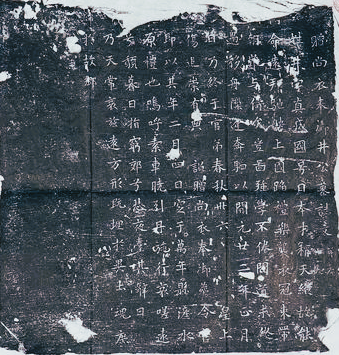 贈尚衣奉御井公墓誌文并序
公姓井字真成國號日本才稱天縱故能
命遠邦馳騁上國蹈禮樂襲衣冠束帶
朝難與儔矣豈圖強學不倦聞道未終
遇移舟隙逢奔駟以開元廿二年正月
日乃終于官弟春秋卅六皇上
傷追崇有典詔贈尚衣奉御葬令官
卽以其年二月四日窆于萬年縣滻水
原禮也嗚呼素車曉引丹旐行哀嗟遠
兮頹暮日指窮郊兮悲夜臺其辭曰
乃天常哀茲遠方形旣埋于異土魂庶
于故鄉